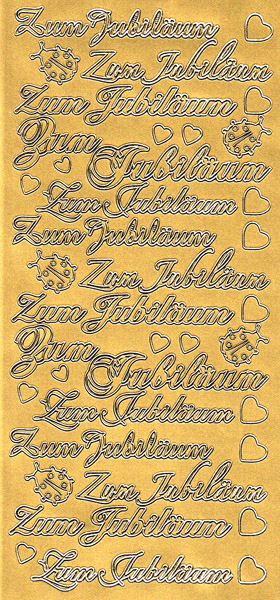 Zum Jubiläum
Zum Jubiläum
Zum Jubiläum
Zum
Jubiläum
Zum Jubiläum
Zum Jubiläum
Zum Jubiläum
Zum Jubiläum
Zum
Jubiläum
Zum Jubiläum
Zum Jubiläum
Zum Jubiläum
Zum Jubiläum
Zum Jubiläum